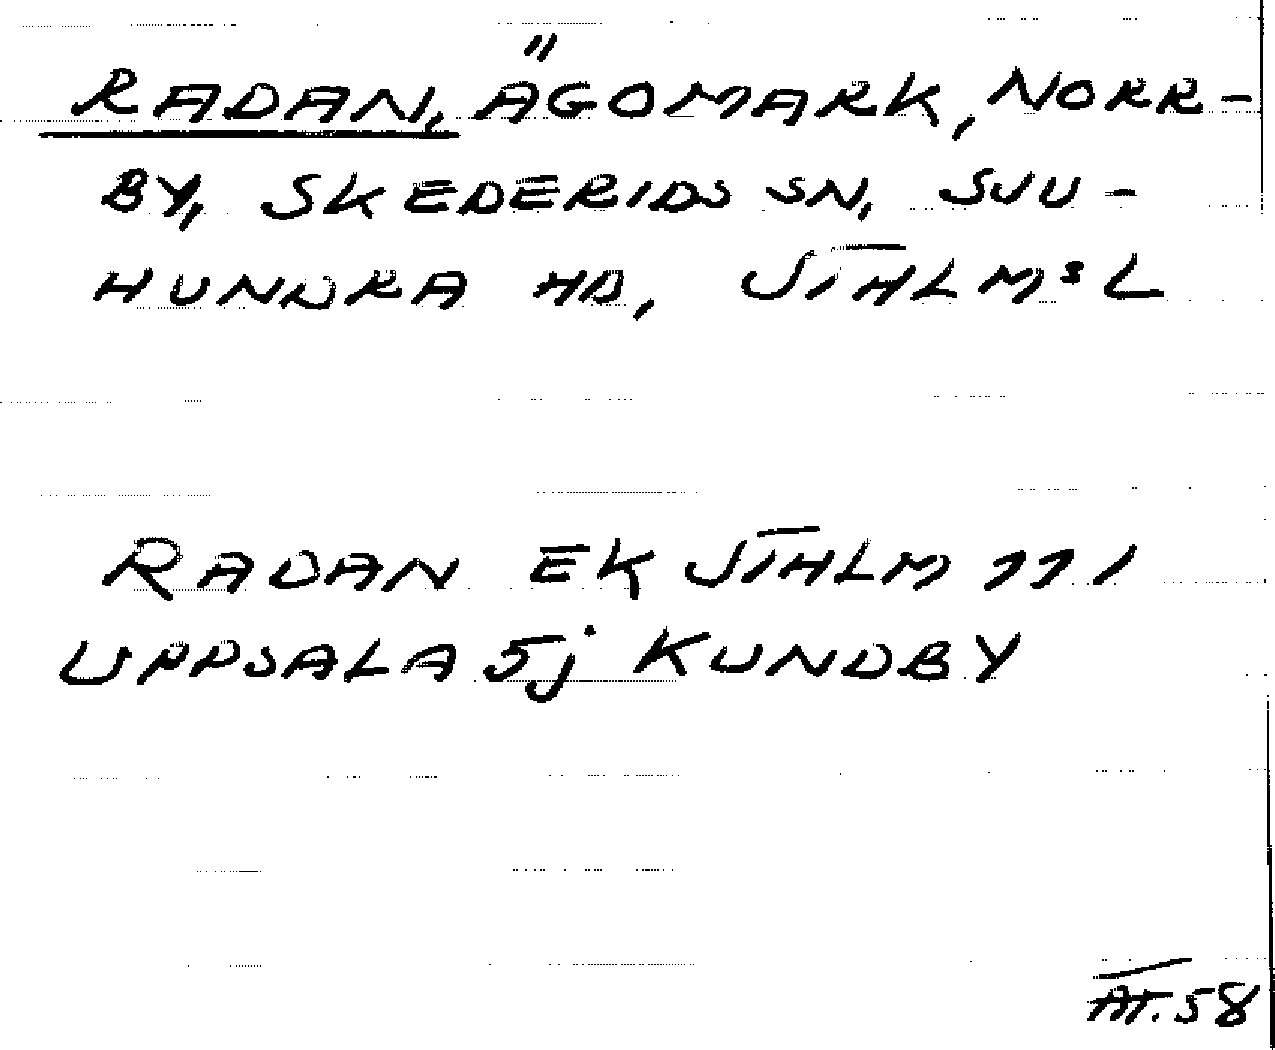 RADAN, ÄGOMARK, NORR-
BY, SKEDERIDS SN, SJU-
HUNDRA HD, STHLMS L
RADAN EK STHLM 111
UPPSALA 5j KUNDBY
AT. 58